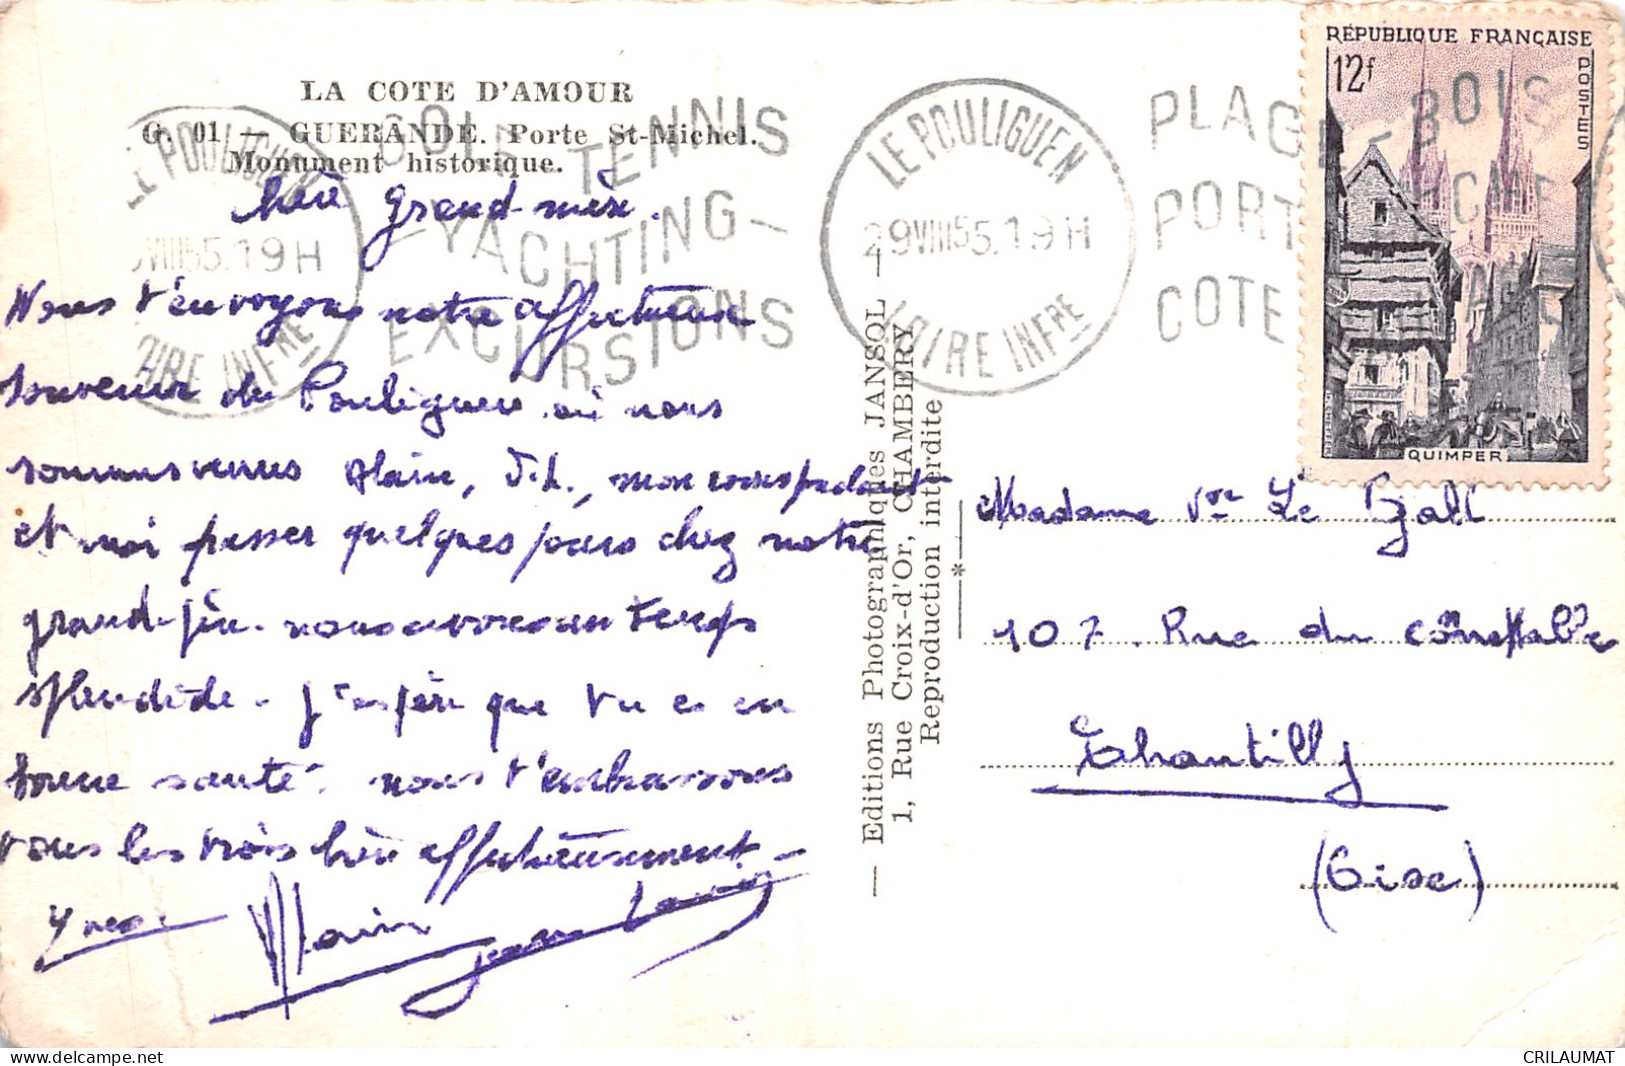 LA COTE D'AMOUR
G. 01 — GUERANDE. Porte St-Michel.
Monument historique.
GOLF TENNIS
— YACHTING —
EXCURSIONS
LE POULIGUEN
VIII55.19H
LOIRE INFRE
LE POULIGUEN
29VIII55.19H
LOIRE INFRE
PLAGE - BOIS
PORT
COTE
RÉPUBLIQUE FRANÇAISE
12f
POSTES
QUIMPER
Chère grand-mère.
Nous t'envoyons notre affectueux
souvenir du Pouliguen où nous
sommes venus Alain, J.L., mon correspondant
et moi passer quelques jours chez notre
grand-père. nous avons un temps
splendide. J'espère que tu es en
bonne santé. nous t'embrassons
tous les trois bien affectueusement.
Yves Alain Jean Louis
— Editions Photographiques JANSOL —
1, Rue Croix-d'Or, CHAMBERY
Reproduction interdite
—*—
Madame Vve Le Gall
107. Rue du Connétable
Chantilly
(Oise)
CRILAUMAT